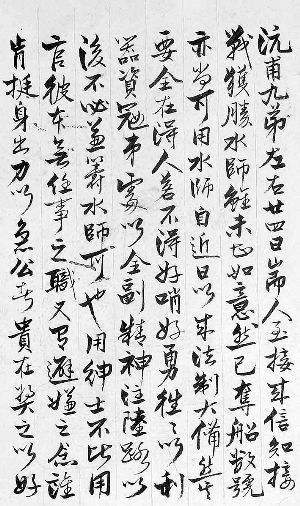 沅甫九弟左右廿四日崗人至接來信知接
戰獲勝水師雖未甚如意然已奪船數號
亦尚可用水師自近日以來法制大備然其
要全在得人若不得好哨好勇往往以利
器資寇弟處以全副精神注陸路以
後不必兼籌水師可也用紳士不比用
官彼本無任事之職又有避嫌之念誰
肯挺身出力以急公者貴在獎之以好